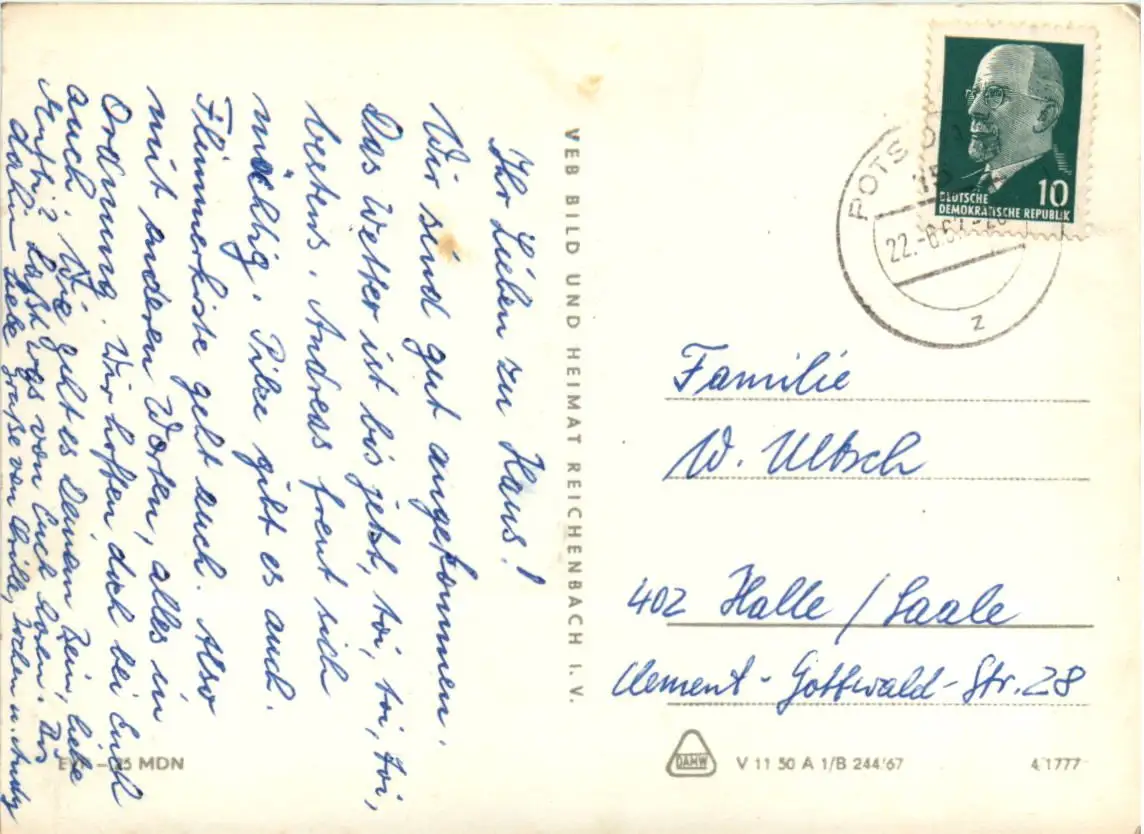 Ihr Lieben zu Haus!
Wir sind gut angekommen.
Das Wetter ist bis jetzt, toi, toi, toi,
bestens. Andreas freut sich
mächtig. Pilze gibt es auch.
Flimmerkiste geht auch. Also
mit anderen Worten, alles in
Ordnung. Wir hoffen doch bei Euch
auch. Wie geht es Deinem Bein, liebe
Laßt was von Euch hören. Bis
dahin liebe Grüße von
VEB BILD UND HEIMAT REICHENBACH I. V.
10
DEUTSCHE
DEMOKRATISCHE REPUBLIK
POTSD
15
22.-8.67-20
z
Familie
W. Ultsch
402 Halle / Saale
Clement-Gottwald-Str. 28
MDN
DAMW
V 11 50 A 1/B 244/67
4/1777